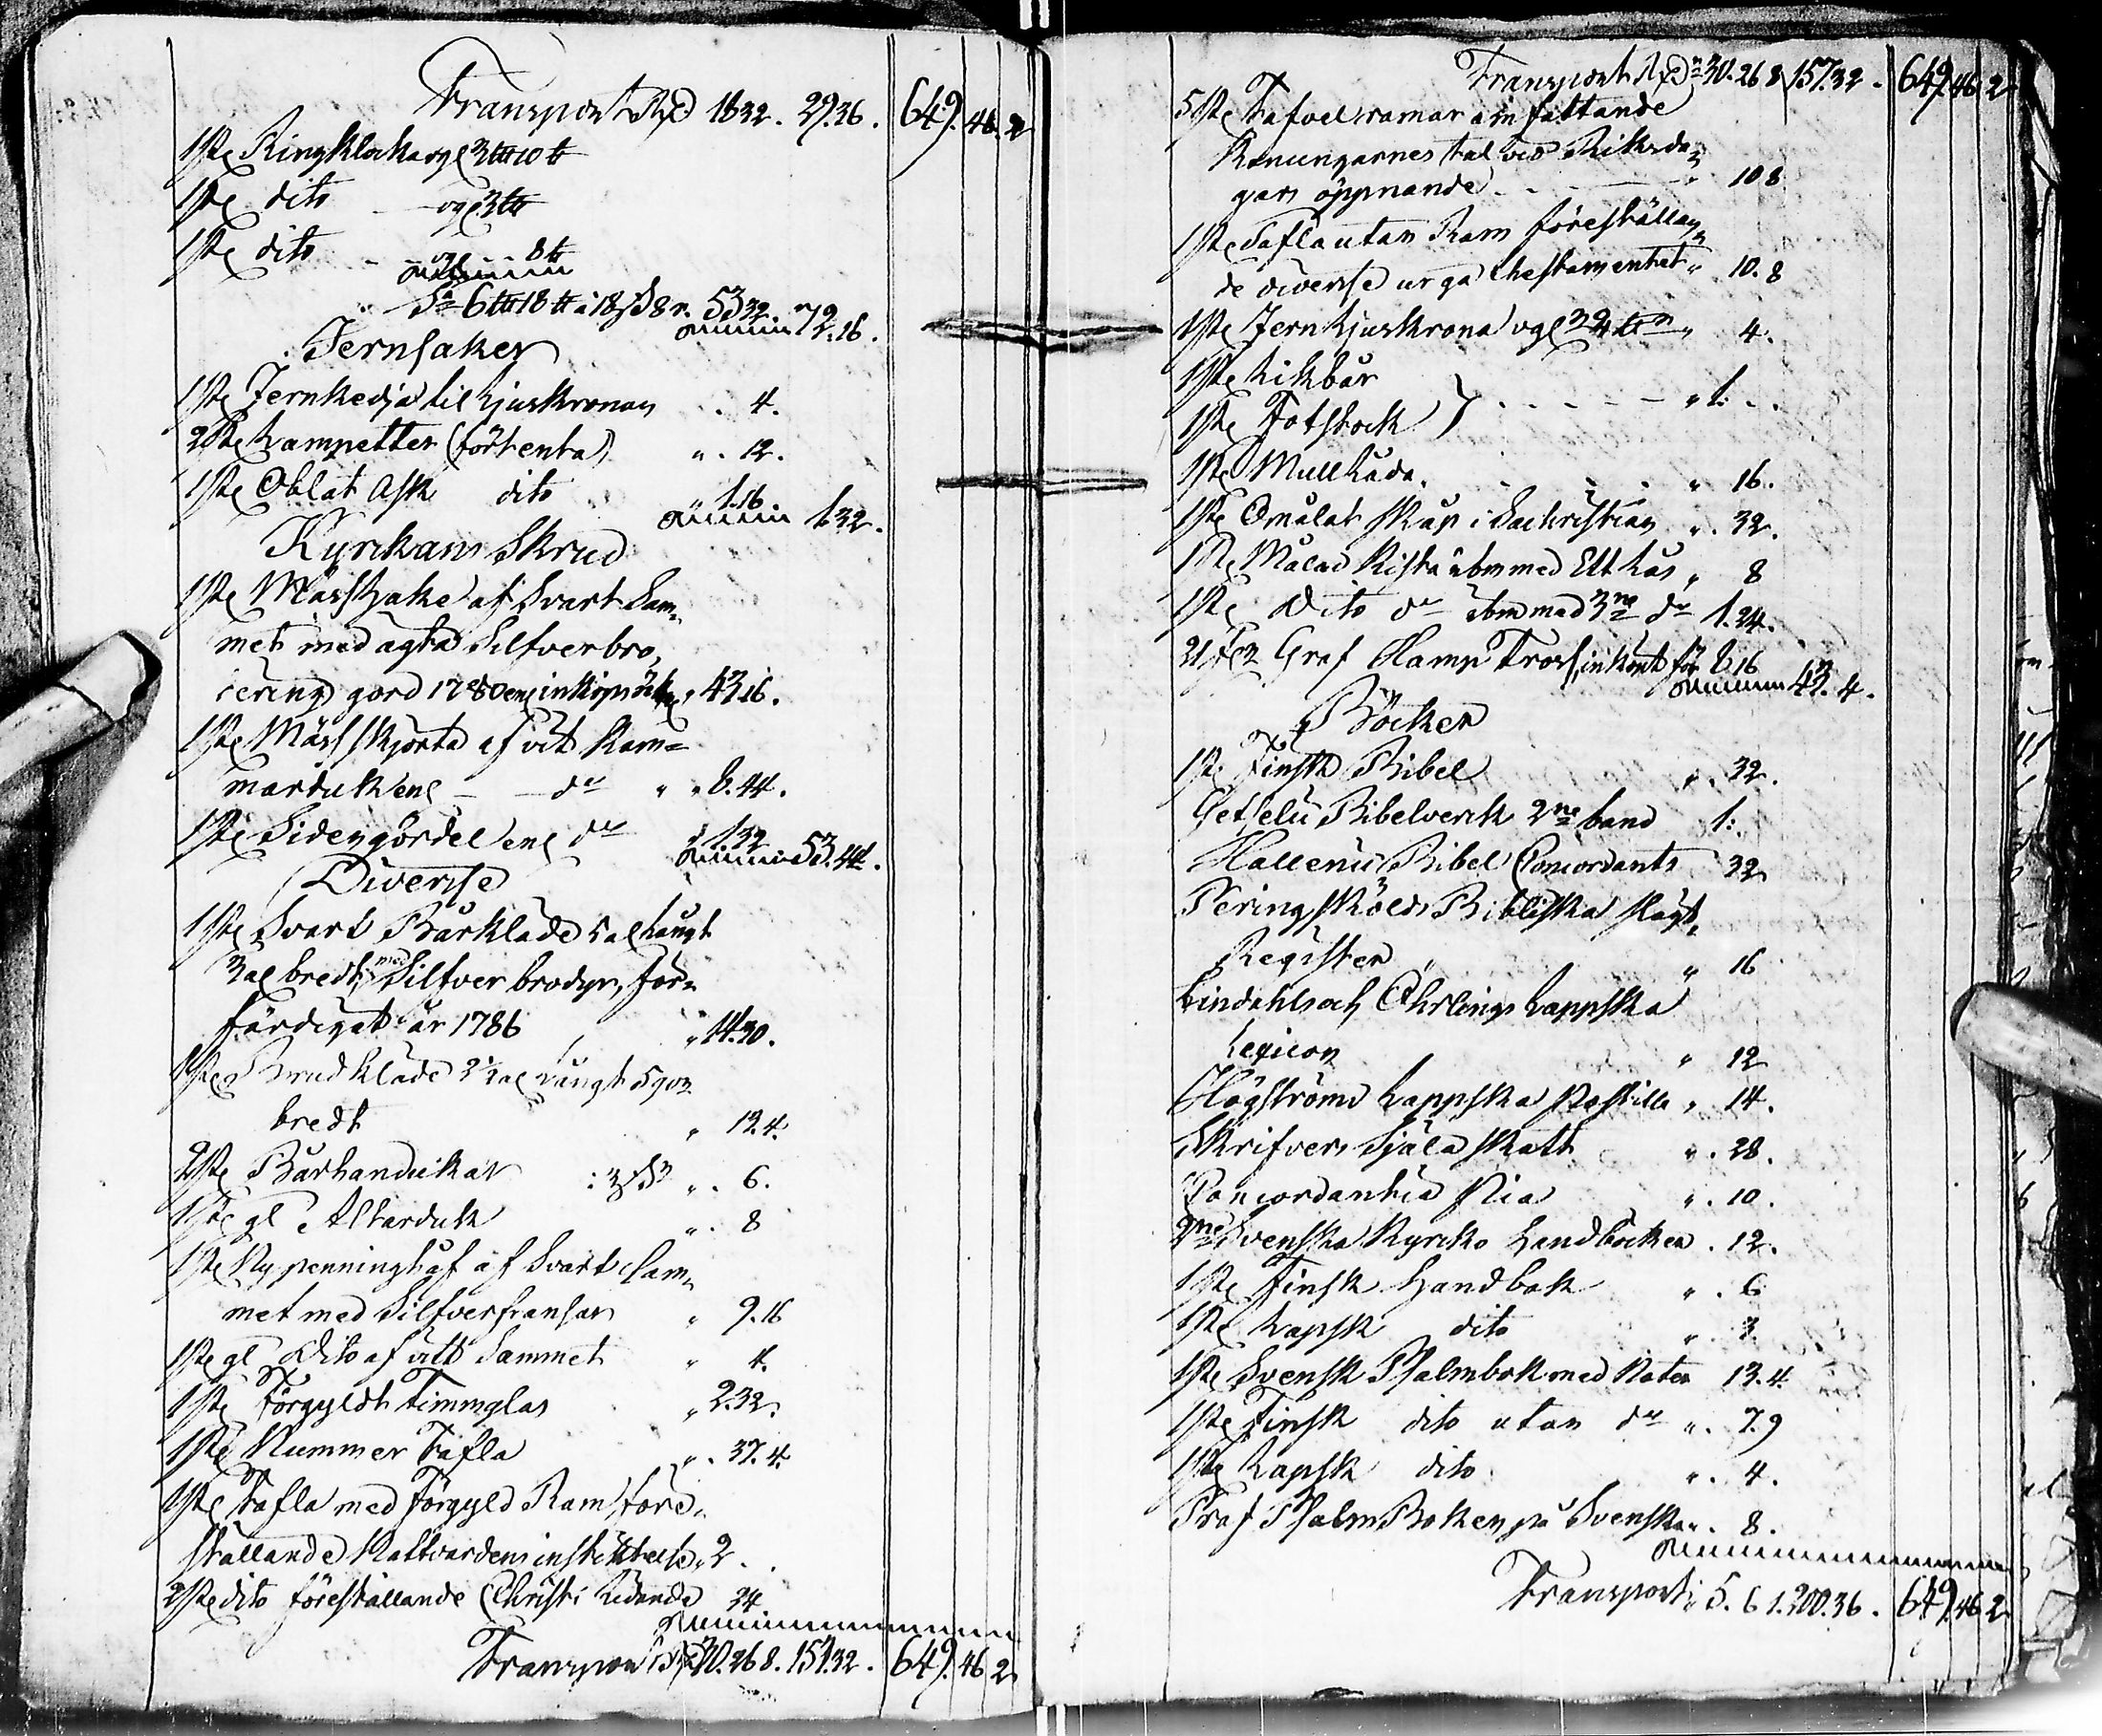 Transport Rd 18 32. 29.36. 649. 46. 2
1 st Ringklocka vg 3 ℔ 10 ℔
1 st dito vg 3 ℔
1 st dito 8 ℔
Sa 6 ℔ 18 ℔ à 18 ß 8 r. 53 32. 72.16.
Jernsaker
1 st Jernkedja til Ljuskronan . 4.
2 st Lampetter (förtenta) " . 12.
1 st Oblat Ask dito " 1.16 1.32.
Kyrckans Skrud
1 st Mässhake af Svart Sam„
met med ägta Silfverbro„
dering gord 1780 en inköpsräk " 43.16.
1 st Mässskjorta af vit Kam=
marduk en do " " 8.44.
1 st Sidengördel en do " 1.32 53.44.
Diverse
1 st Svart Bårkläde 5 al långt
3 al bredt, med Silfver brodyr, för=
färdigat år 1786 " 14.30.
1 st Brudkläde 3 1/2 al långt 5 qvr
bredt " 12.4.
2 st Bårhandukar : 3 ß " . 6.
1 st gl Altarduk " . 8
1 st Ny penninghåf af Svart Sam„
met med Silfverfransar " 9.16
1 st gl Dito af vitt Sammet " 4.
1 st Förgyldt Timmglas " 2.32.
1 st Nummer Tafla " . 37.4.
1 st Tafla med förgyld Ram före„
ställande Nattvardens instiktelse " 2.
2 st dito föreställande Christi Lidande 24
Transport 30.26 8. 157.32. 649. 46 2
Transport Rd 30. 26 8 157.32. 649. 46 2
5 st Tafvelramar innfattande
Konungarnes tal vid Riksda„
gars öppnande " 10 8
1 st Tafla utan Ram föreställan„
de diverse ur ga Thestamentet " 10. 8
1 st Jern Ljuskrona vg 34 ℔ " 4.
1 st Likbår
1 st Fotstock } " 1. -
1 st Mullåda. " 16.
1 st Omålat skåp i Sachristian " . 32.
1 st Målad Kista utan med Ett Lås " 8
1 st Dito do med 3ne do 1.24.
21 Graf Hamp Tross, inköpt för 1.16 43. 4.
Böcker
1 st Finsk Bibel " . 32.
Getselii Bibelverk 2ne band 1:
Hallenii Bibel Concordants 32
Peringskölds Bibliska Slägt„
Register " " 16
Lindahls och Öhrlings Lappska
Lexicon " 12
Högströms Lappska Postilla " 14.
Skrifvers Själa skatt " . 28.
Concordantia Pia " . 10.
2ne Svenska Kyrcko Handböcker . 12.
1 st Finsk Handbok " . 6
1 st Lapsk dito " . 3
1 st Svensk Psalmbok med Noter 13. 4.
1 st Finsk dito utan do " . 7.9
1 st Lapsk dito " . 4.
Prof Psalm Boken på Svenska " . 8.
Transport " 5. 6 1. 200.36. 649. 46 2